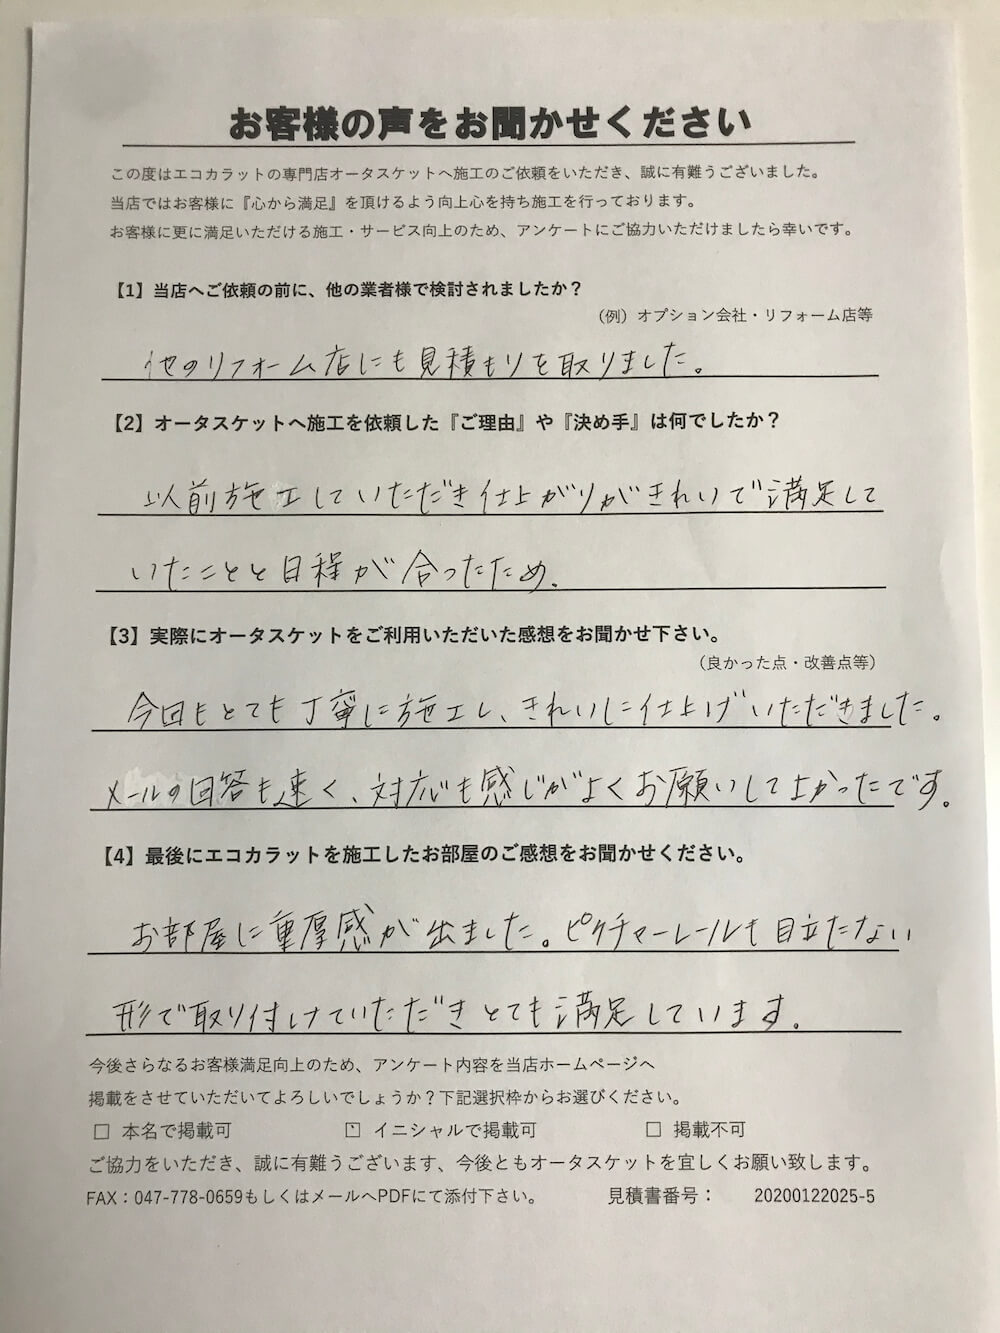 お客様の声をお聞かせください
この度はエコカラットの専門店オータスケットへ施工のご依頼をいただき、誠に有難うございました。
当店ではお客様に『心から満足』を頂けるよう向上心を持ち施工を行っております。
お客様に更に満足いただける施工・サービス向上のため、アンケートにご協力いただけましたら幸いです。
【1】当店へご依頼の前に、他の業者様で検討されましたか？
（例）オプション会社・リフォーム店等
他のリフォーム店にも見積もりを取りました。
【2】オータスケットへ施工を依頼した『ご理由』や『決め手』は何でしたか？
以前施工していただき仕上がりがきれいで満足して
いたことと日程が合ったため。
【3】実際にオータスケットをご利用いただいた感想をお聞かせ下さい。
（良かった点・改善点等）
今回もとても丁寧に施工し、きれいに仕上げいただきました。
メールの回答も速く、対応も感じがよくお願いしてよかったです。
【4】最後にエコカラットを施工したお部屋のご感想をお聞かせください。
お部屋に重厚感が出ました。ピクチャーレールも目立たない
形で取り付けていただきとても満足しています。
今後さらなるお客様満足向上のため、アンケート内容を当店ホームページへ
掲載をさせていただいてよろしいでしょうか？下記選択枠からお選びください。
□ 本名で掲載可 □ イニシャルで掲載可 □ 掲載不可
ご協力をいただき、誠に有難うございます、今後ともオータスケットを宜しくお願い致します。
FAX：047-778-0659もしくはメールへPDFにて添付下さい。 見積書番号： 20200122025-5